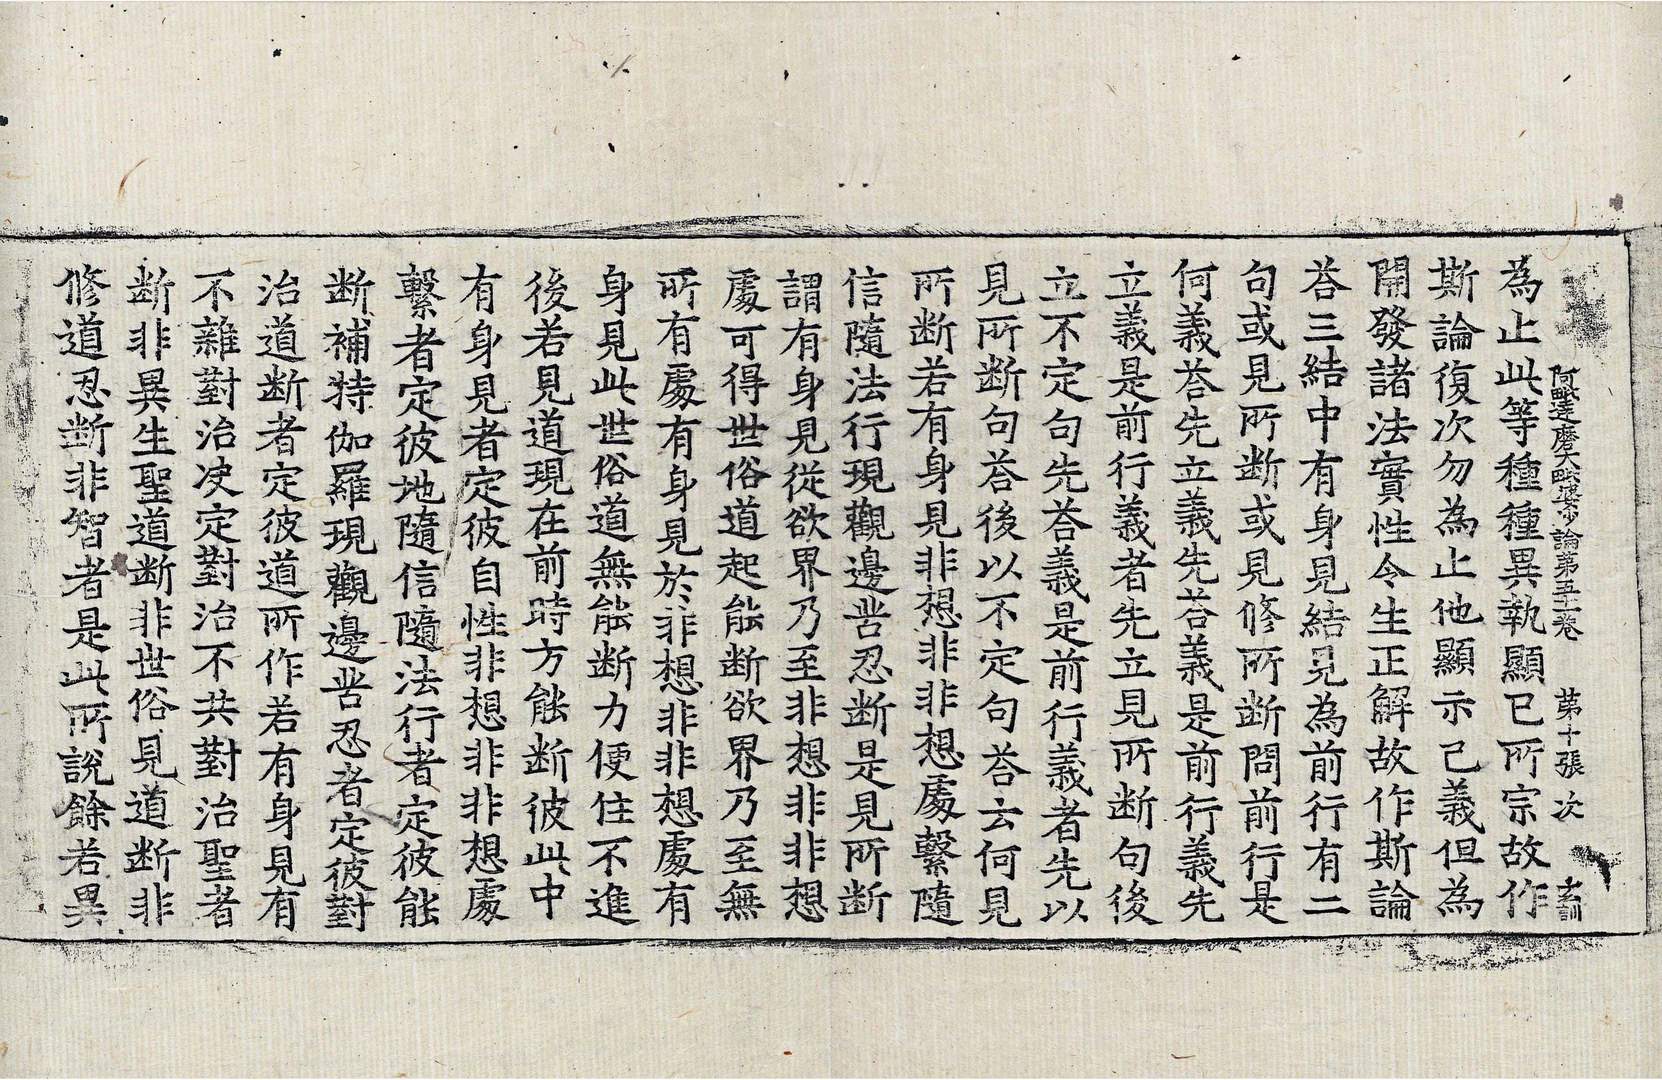 阿毗達磨大毗婆沙論第五十一卷　第十張　次　玄訓
為止此等種種異執顯已所宗故作
斯論復次勿為止他顯示己義但為
開發諸法實性令生正解故作斯論
荅三結中有身見結見為前行有二
句或見所断或見修所断問前行是
何義荅先立義先荅義是前行義先
立義是前行義者先立見所断句後
立不定句先荅義是前行義者先以
見所断句荅後以不定句荅云何見
所断若有身見非想非非想處繫隨
信隨法行現觀邊苦忍断是見所断
謂有身見從欲界乃至非想非非想
處可得世俗道起能断欲界乃至無
所有處有身見於非想非非想處有
身見此世俗道無能断力便住不進
後若見道現在前時方能断彼此中
有身見者定彼自性非想非非想處
繫者定彼地隨信隨法行者定彼能
断補特伽羅現觀邊苦忍者定彼對
治道断者定彼道所作若有身見有
不雜對治决定對治不共對治聖者
断非異生聖道断非世俗見道断非
修道忍断非智者是此所說餘若異